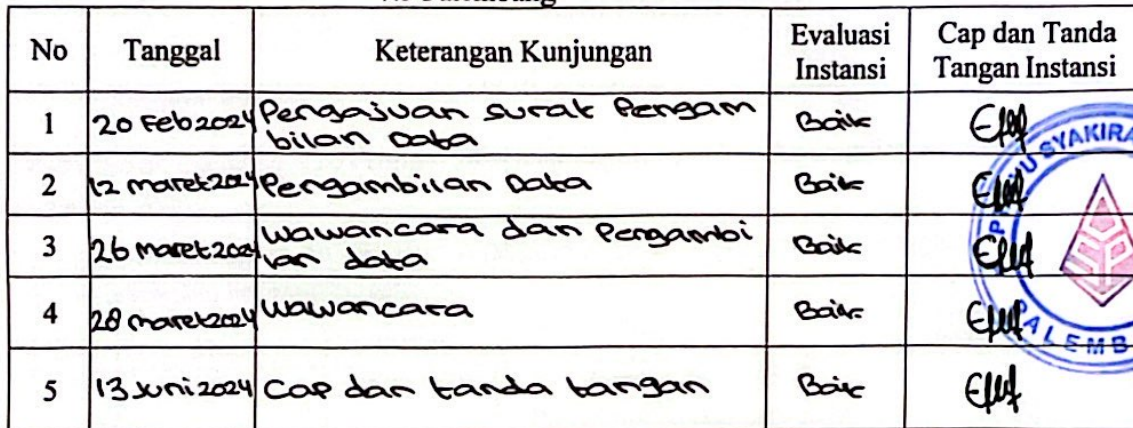 No Tanggal Keterangan Kunjungan Evaluasi Instansi Cap dan Tanda Tangan Instansi
1 20 Feb 2024 Pengajuan surat Pengam
bilan Data Baik
2 12 maret 2024 Pengambilan Data Baik
3 26 maret 2024 Wawancara dan Pengambi
lan data Baik
4 28 maret 2024 Wawancara Baik
5 13 Juni 2024 Cap dan tanda tangan Baik
SYAKIRA
PALEMB